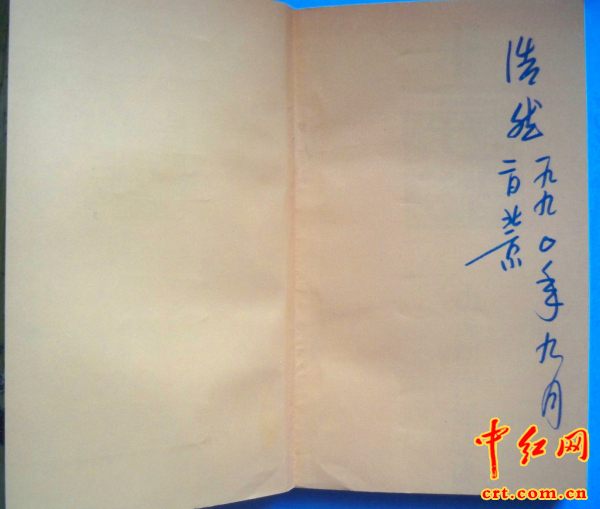 浩然
一九九〇年九月
二日北京
中红网
crt.com.cn